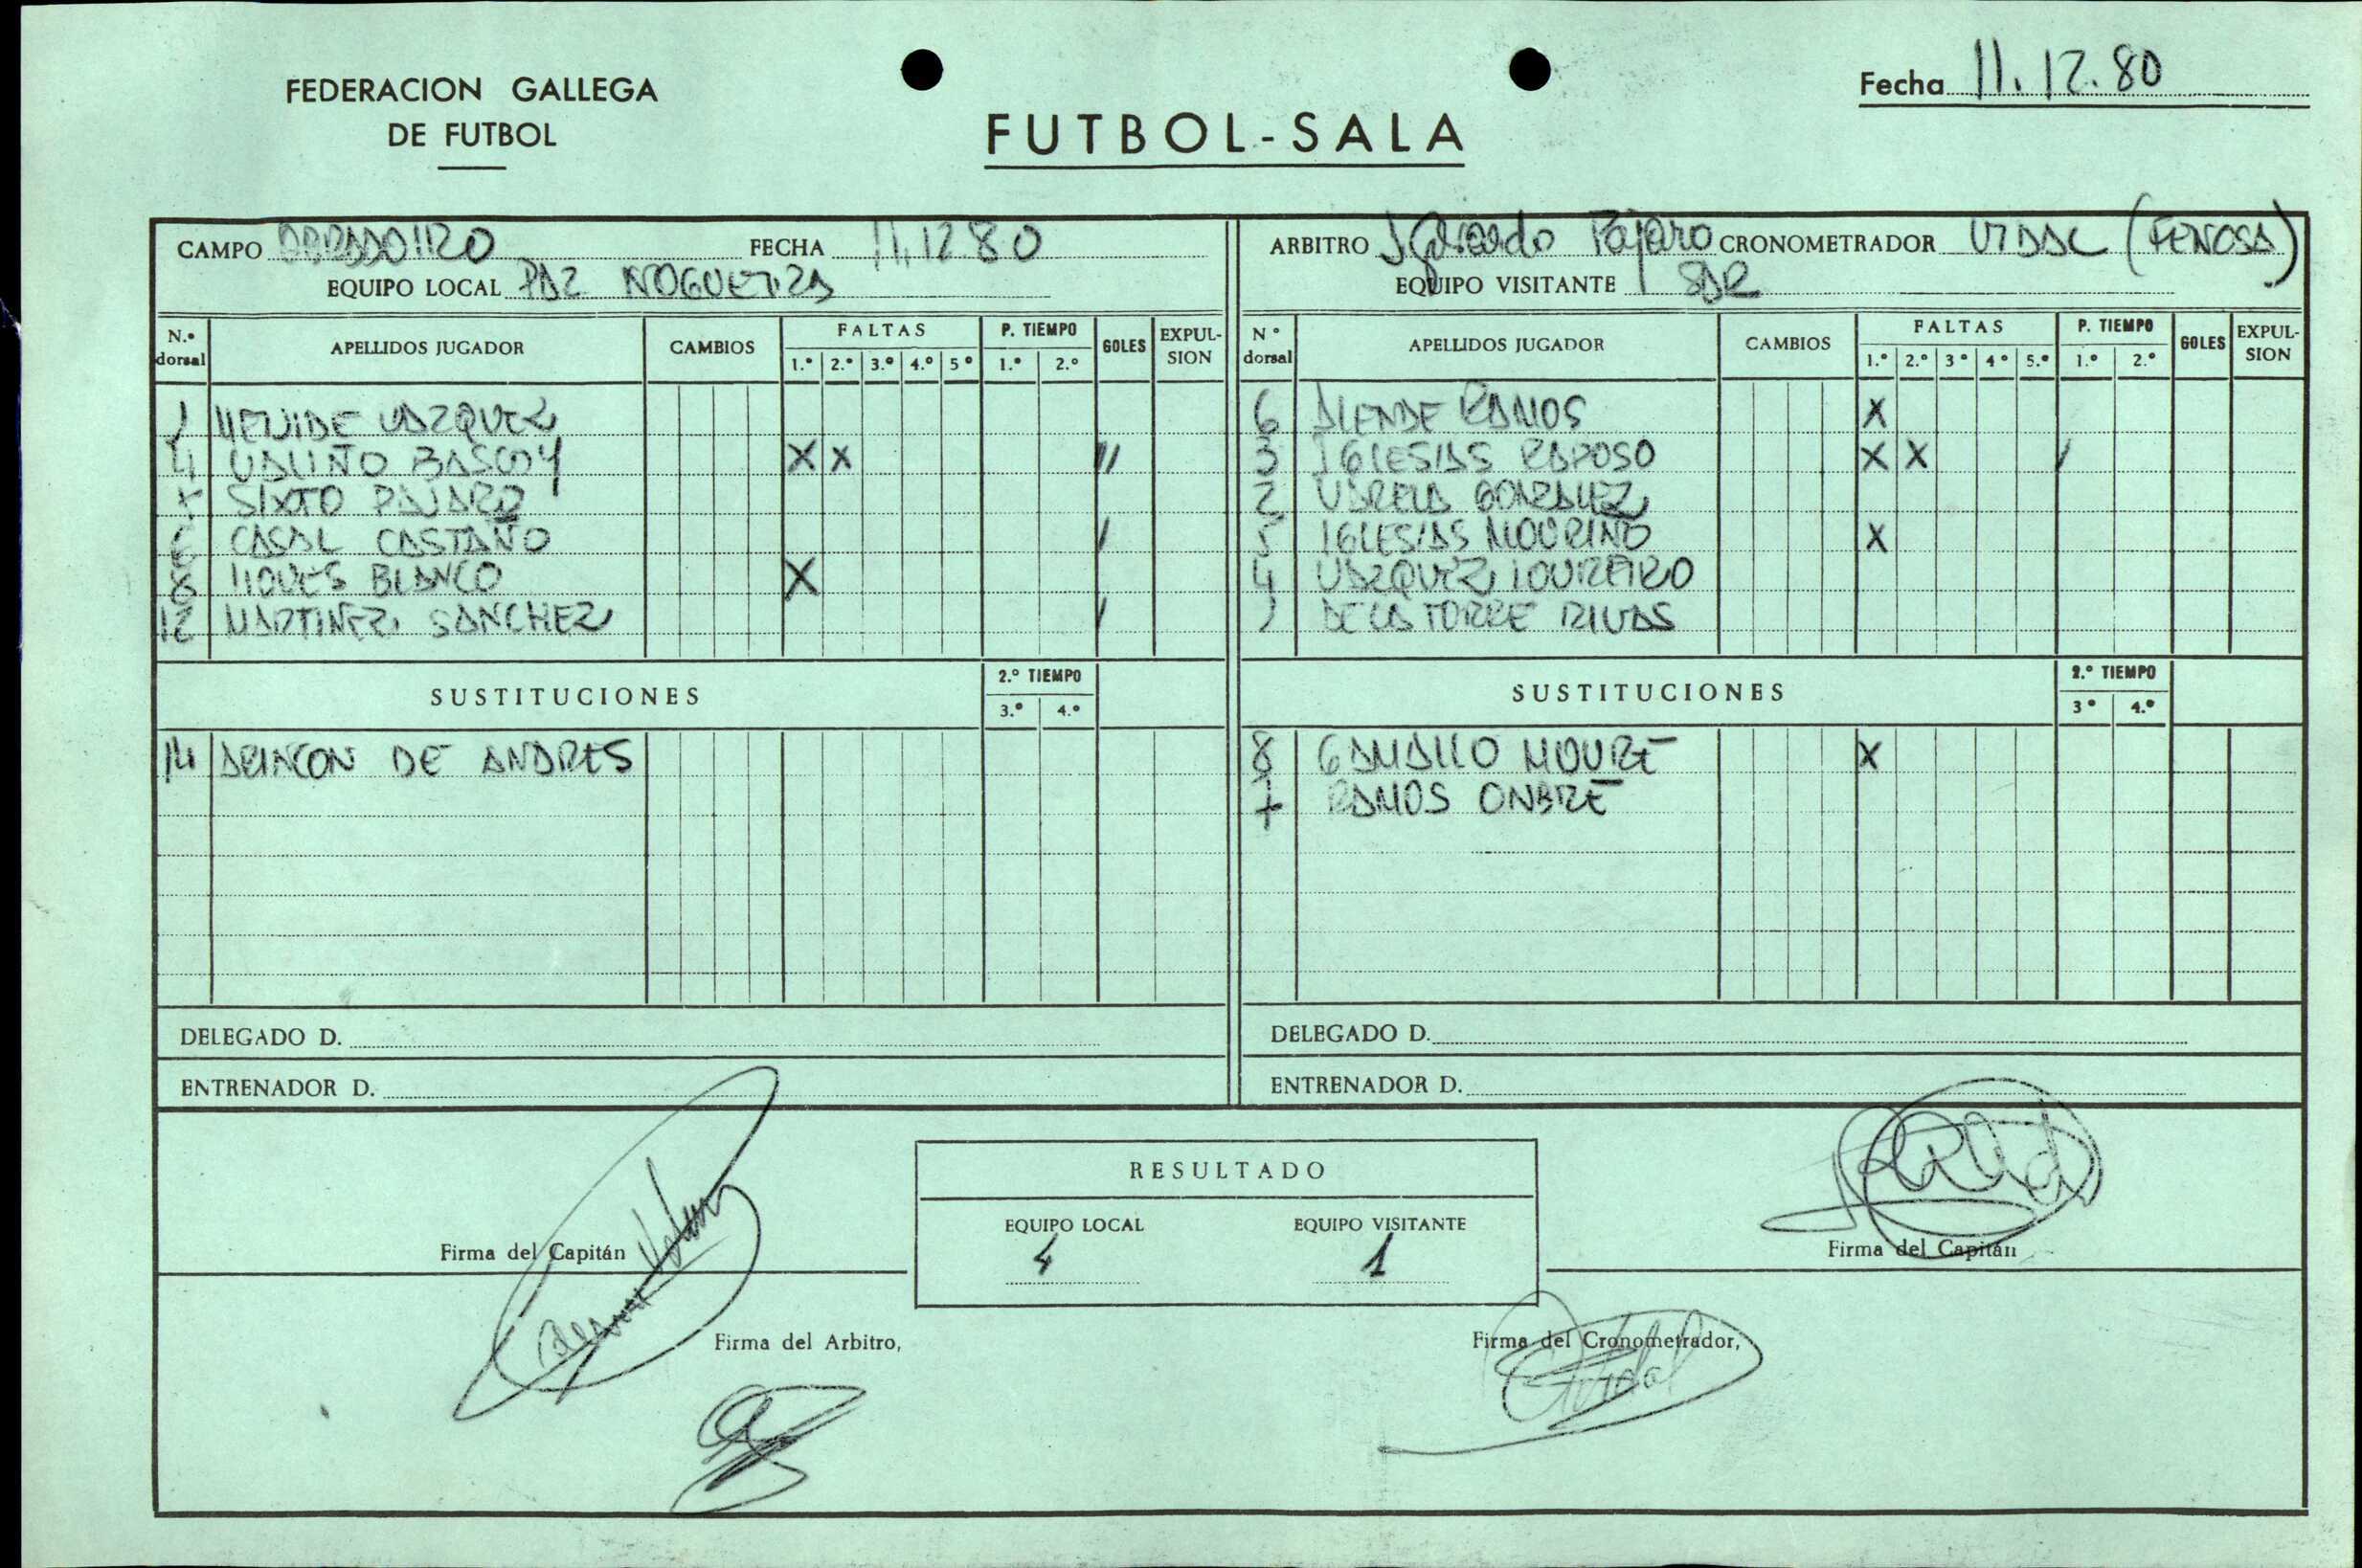 FEDERACION GALLEGA
DE FUTBOL
FUTBOL-SALA
Fecha 11.12.80
CAMPO OBRADOIRO FECHA 11.12.80
EQUIPO LOCAL PAZ NOGUEIRA
ARBITRO Pájaro CRONOMETRADOR VIDAL (FENOSA)
EQUIPO VISITANTE SAR
N.º dorsal APELLIDOS JUGADOR CAMBIOS FALTAS 1.º 2.º 3.º 4.º 5º P. TIEMPO 1.º 2.º GOLES EXPUL-SION
1 MENIDE VAZQUEZ
4 VALIÑO BASCOY X X //
SIXTO PAJARO
6 CASAL CASTAÑO /
8 MOVES BLANCO X
12 MARTINEZ SANCHEZ /
SUSTITUCIONES 2.º TIEMPO 3.º 4.º
14 ARINCON DE ANDRES
DELEGADO D.
ENTRENADOR D.
Nº dorsal APELLIDOS JUGADOR CAMBIOS FALTAS 1.º 2.º 3º 4º 5.º P. TIEMPO 1.º 2.º GOLES EXPUL-SION
6 ALENDE RAMOS X
3 IGLESIAS RAPOSO X X /
2 VARELA GONZALEZ
5 IGLESIAS MOURIÑO X
4 VAZQUEZ LOUREIRO
1 DE LA TORRE RIVAS
SUSTITUCIONES 2.º TIEMPO 3º 4.º
8 GAMALLO MOURE X
7 RAMOS ONBRE
DELEGADO D.
ENTRENADOR D.
RESULTADO
EQUIPO LOCAL EQUIPO VISITANTE
4 1
Firma del Capitán
Firma del Capitán
Firma del Arbitro,
Firma del Cronometrador,
Vidal